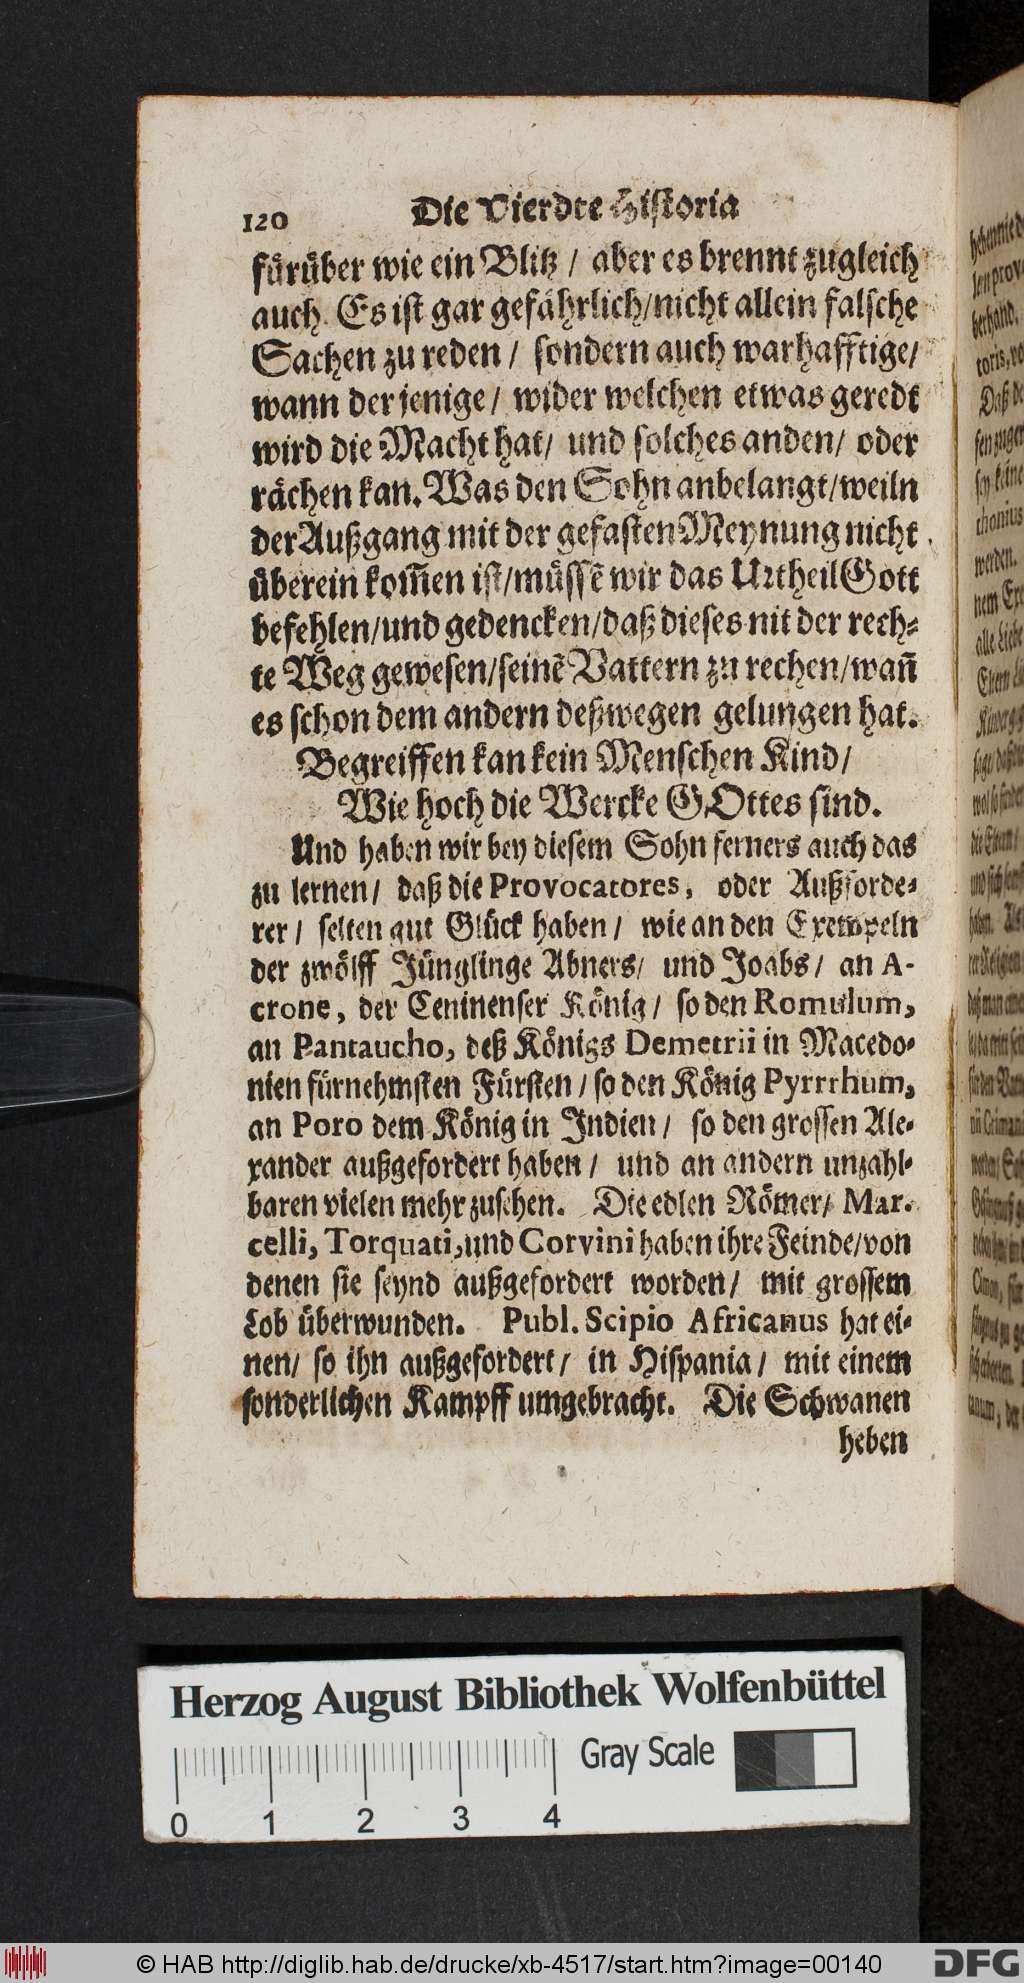 120 Die Vierdte Historia
fürüber wie ein Blitz / aber es brennt zugleich
auch. Es ist gar gefährlich/nicht allein falsche
Sachen zu reden / sondern auch warhafftige/
wann der jenige/ wider welchen etwas geredt
wird die Macht hat/ und solches anden/ oder
rächen kan. Was den Sohn anbelangt/weiln
der Außgang mit der gefasten Meynung nicht
überein kom̃en ist/müssẽ wir das Urtheil Gott
befehlen/und gedencken/daß dieses nit der rech-
te Weg gewesen/seinẽ Vattern zu rechen/wañ
es schon dem andern deßwegen gelungen hat.
Begreiffen kan kein Menschen Kind/
Wie hoch die Wercke GOttes sind.
Und haben wir bey diesem Sohn ferners auch das
zu lernen/ daß die Provocatores, oder Außforde-
rer / selten gut Glück haben / wie an den Exempeln
der zwölff Jünglinge Abners/ und Joabs/ an A-
crone, der Ceninenser König/ so den Romulum,
an Pantaucho, deß Königs Demetrii in Macedo-
nien fürnehmsten Fürsten / so den König Pyrrrhum,
an Poro dem König in Indien / so den grossen Ale-
xander außgefordert haben / und an andern unzahl-
baren vielen mehr zusehen. Die edlen Römer/ Mar-
celli, Torquati, und Corvini haben ihre Feinde/von
denen sie seynd außgefordert worden/ mit grossem
Lob überwunden. Publ. Scipio Africanus hat ei-
nen/ so ihn außgefordert/ in Hispania/ mit einem
sonderlichen Kampff umgebracht. Die Schwanen
heben
Herzog August Bibliothek Wolfenbüttel
Gray Scale
0 1 2 3 4
© HAB http://diglib.hab.de/drucke/xb-4517/start.htm?image=00140
DFG